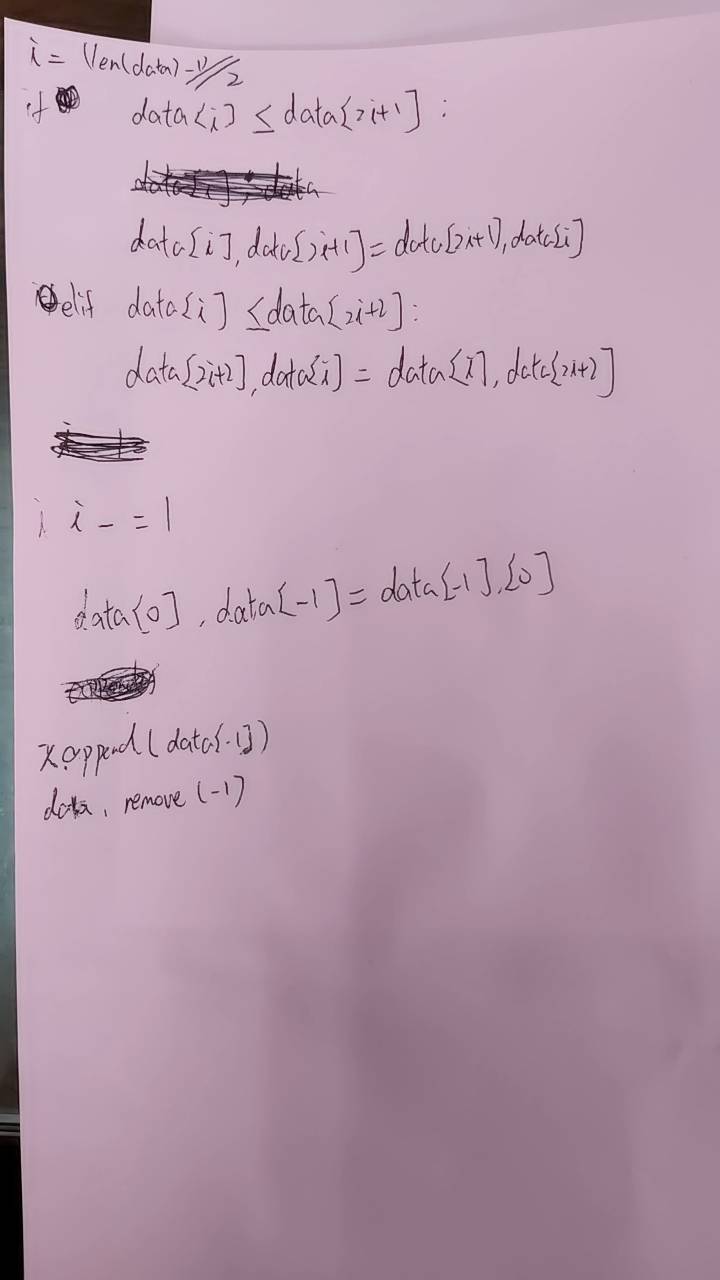 i = (len(data)-1)//2
if data[i] ≤ data[2i+1] :
data[i], data[2i+1] = data[2i+1], data[i]
elif data[i] ≤ data[2i+2] :
data[2i+2], data[i] = data[i], data[2i+2]
i i - = 1
data[0], data[-1] = data[-1], [0]
x.append(data[-1])
data. remove (-1)